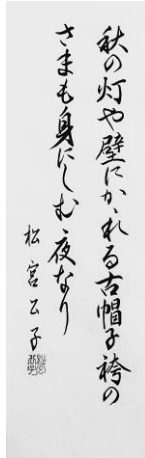 秋の灯や壁にかゝれる古帽子袴の
さまも身にしむ夜なり
松宮公子